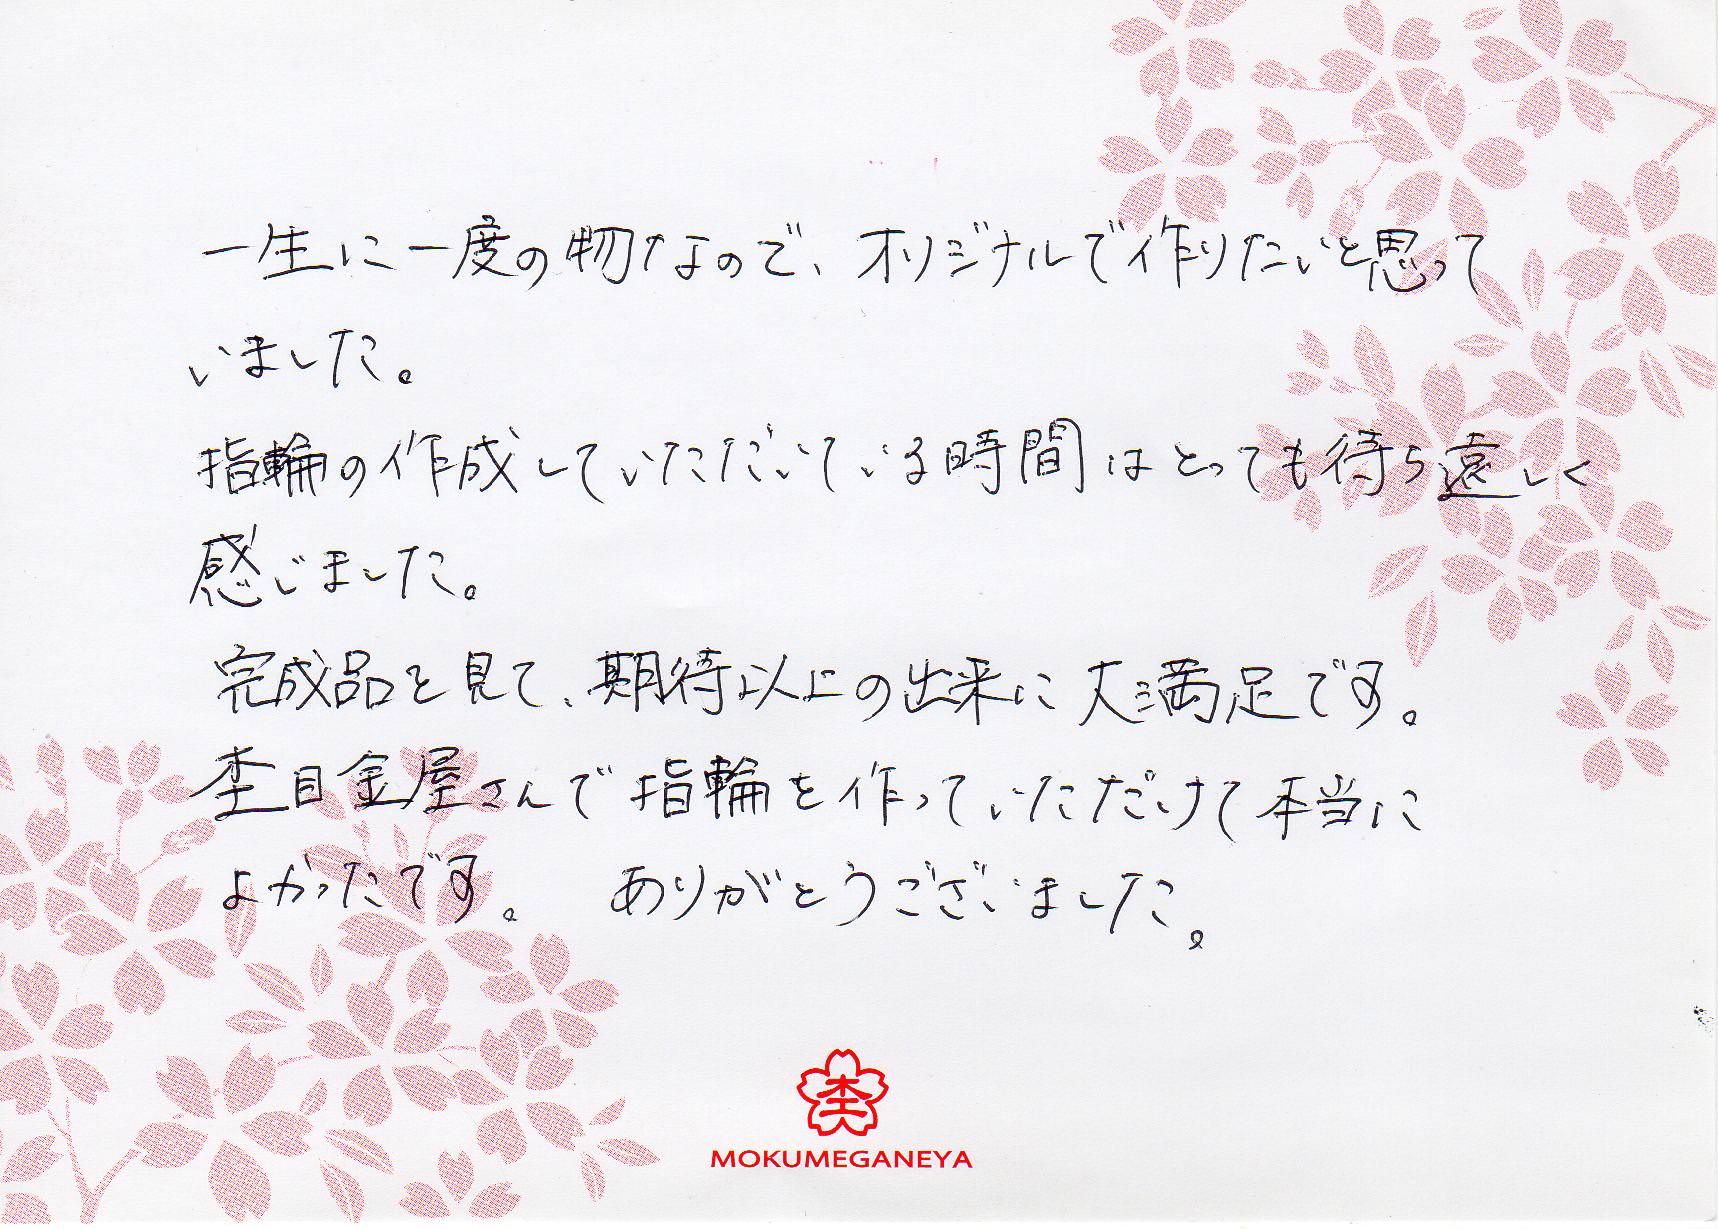 一生に一度の物なので、オリジナルで作りたいと思って
いました。
指輪の作成していただいている時間はとっても待ち遠しく
感じました。
完成品を見て、期待以上の出来に大満足です。
杢目金屋さんで指輪を作っていただけて本当に
よかったです。 ありがとうございました。
杢
MOKUMEGANEYA